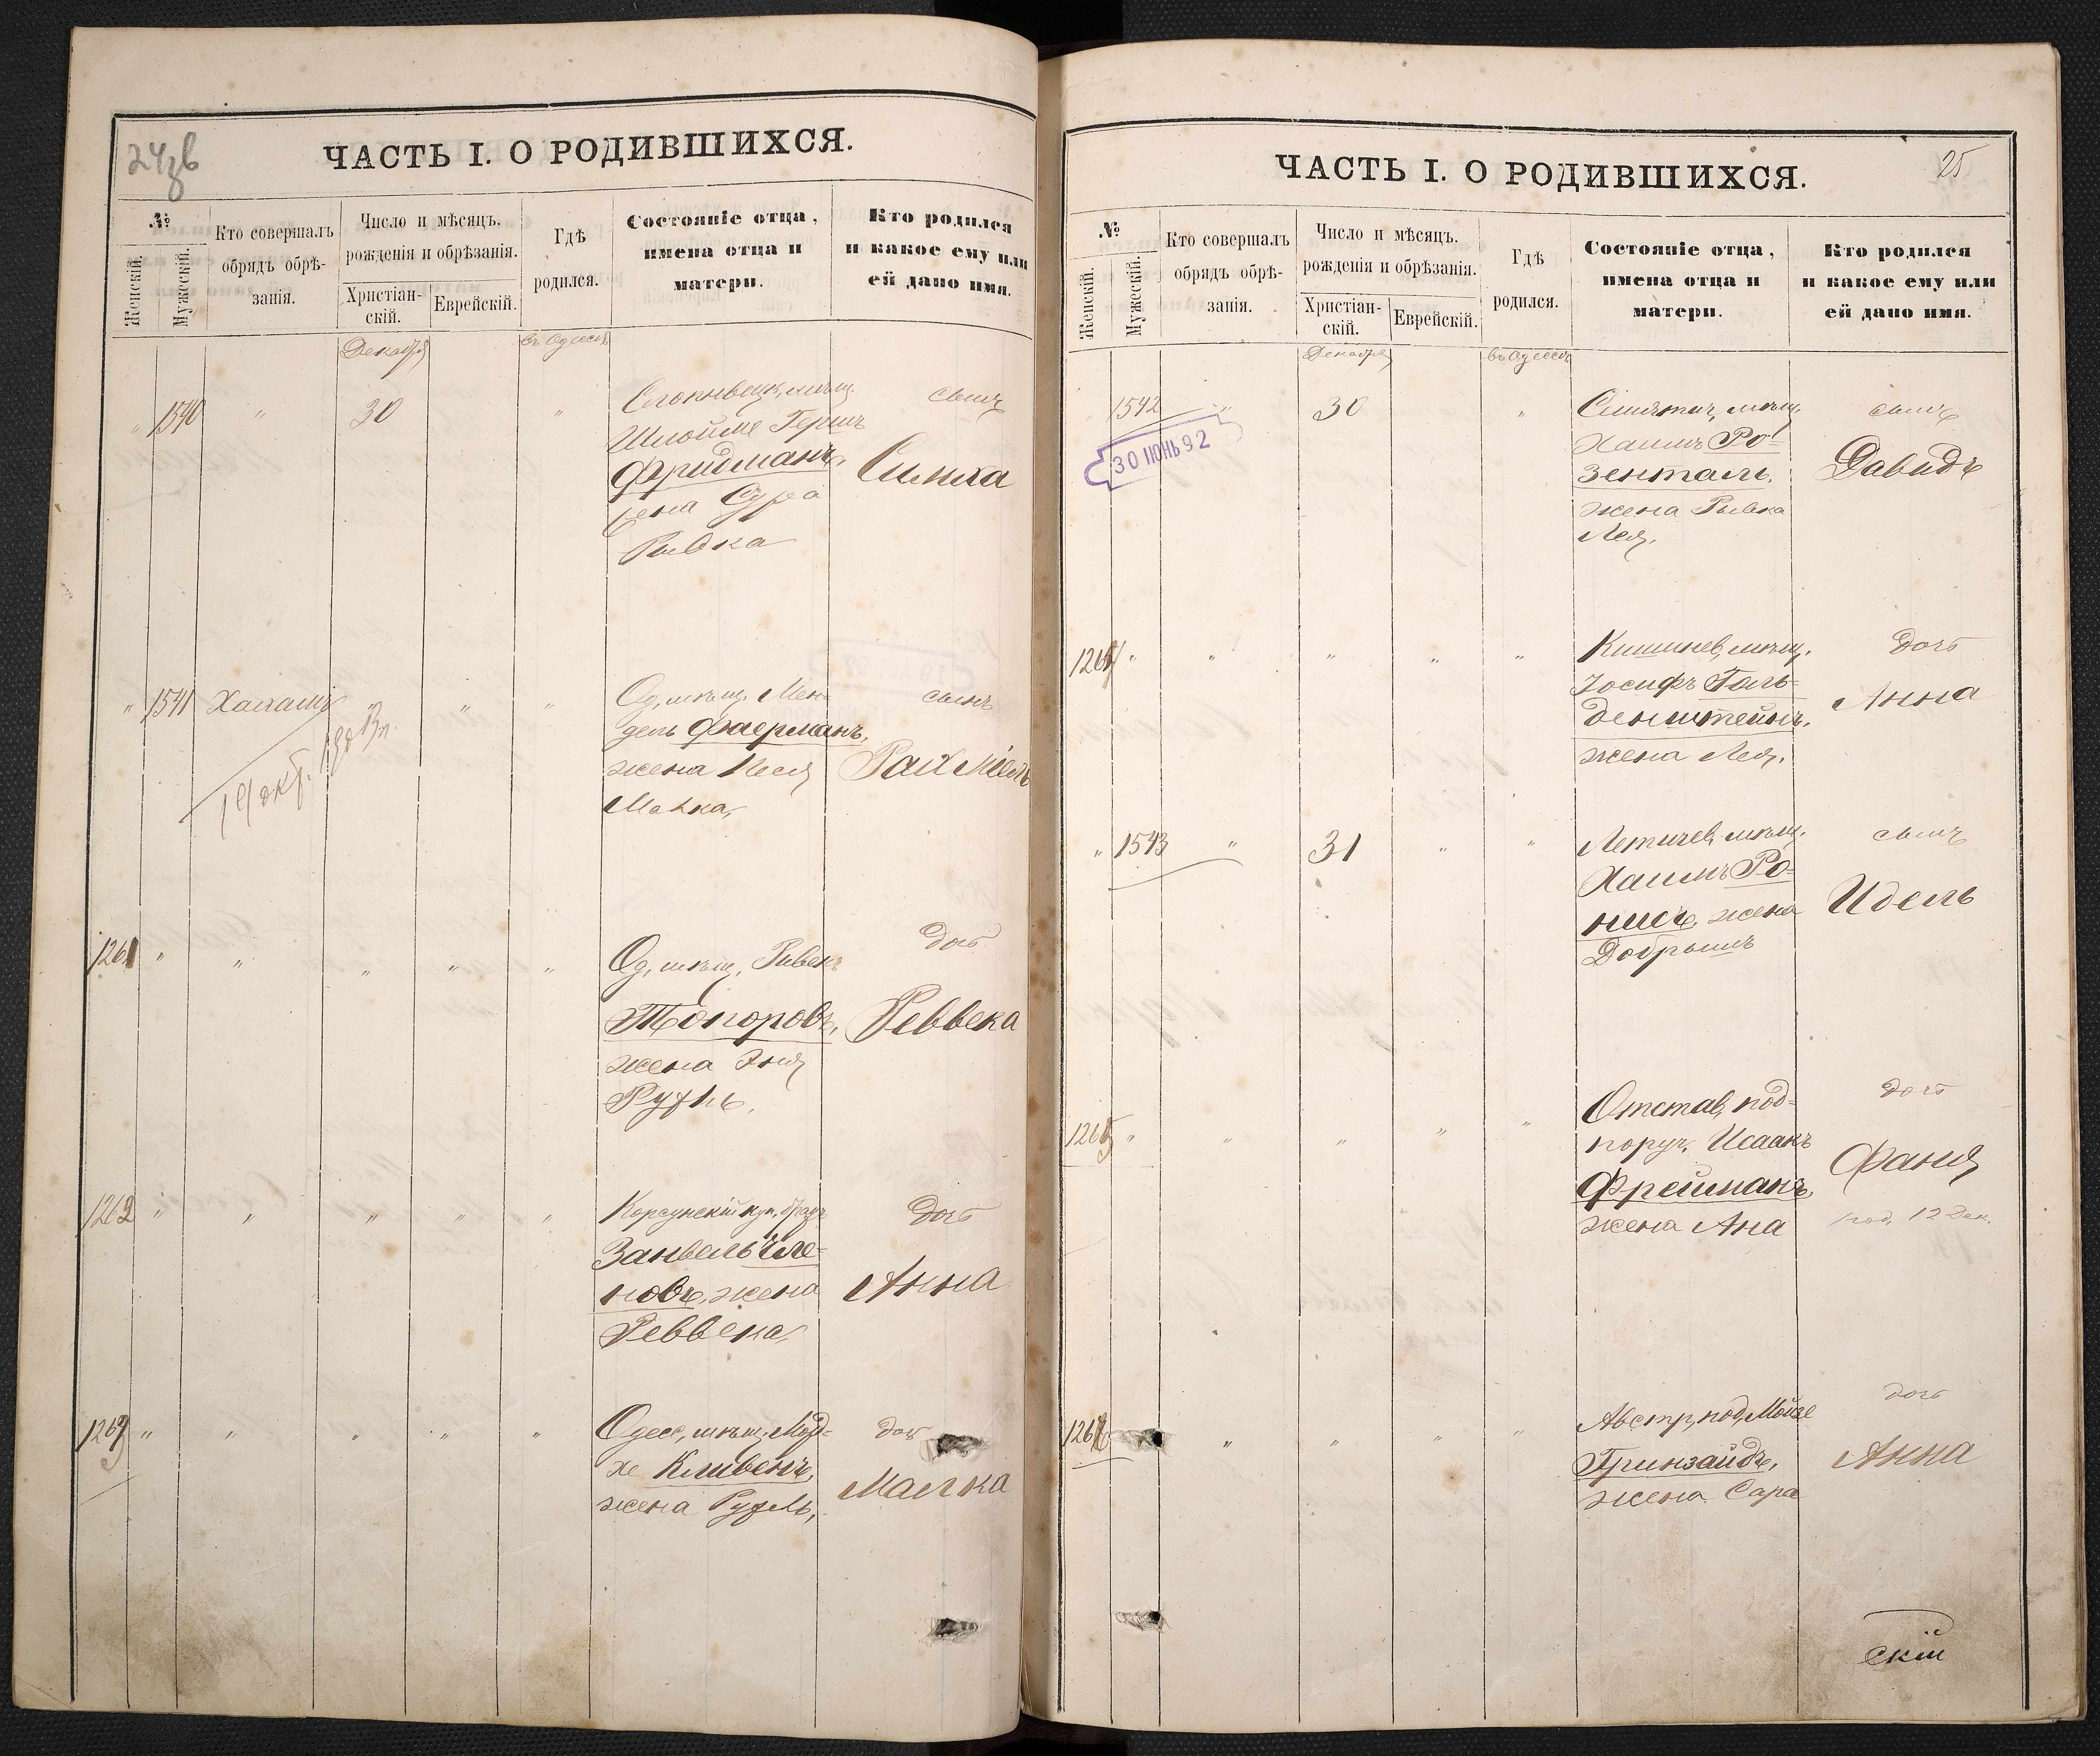 24 зв
ЧАСТЬ I. О РОДИВШИХСЯ.
№
Женскій.
Мужескій.
Кто совершалъ
обрядъ обрѣ-
занія.
Число и мѣсяцъ.
рожденія и обрѣзанія.
Христіан-
скій.
Еврейскій.
Гдѣ
родился.
Состояніе отца,
имена отца и
матери.
Кто родился
и какое ему или
ей дано имя.
Декабря
въ Одессѣ
" 1540 " 30 "
мѣщ.
Шлойме Гершъ
Фридманъ,
жена Сура
Ривка
сынъ
Симха
" 1541 " " "
Од. мѣщ. Мен-
дель Фаерманъ,
жена Песя
Малка,
сынъ
Рахміель
1261 " " " " "
Од. мѣщ.
Топоровъ,
жена Эня
Рухль.
дочь
Реввека
1262 " " " " "
Корсунскій куп. братъ
Занвель Чле-
новъ, жена
Реввека,
дочь
Анна
1263 " " " " "
Одес. мѣщ. Морд-
хе Кливенъ,
жена Рухель,
дочь
Малка
25
ЧАСТЬ I. О РОДИВШИХСЯ.
№
Женскій.
Мужескій.
Кто совершалъ
обрядъ обрѣ-
занія.
Число и мѣсяцъ.
рожденія и обрѣзанія.
Христіан-
скій.
Еврейскій.
Гдѣ
родился.
Состояніе отца,
имена отца и
матери.
Кто родился
и какое ему или
ей дано имя.
Декабря
въ Одессѣ
1542 " 30 "
30 ІЮНЬ 92
мѣщ.
Хаимъ Ро-
зенталь,
жена Рывка
Лея,
сынъ
Давидъ
1264 " " " " "
Кишинев. мѣщ.
Іосифъ Голь-
денштейнъ,
жена Лея,
дочь
Анна
" 1543 " 31 " "
Летичев. мѣщ.
Хаимъ Ро-
нисъ, жена
Добрышъ
сынъ
Идель
1265 " " " " "
Отстав. под-
поруч. Исаакъ
Фрейманъ,
жена Ана
дочь
Фаня
род. 12 Дек.
1266 " " " "
Австр. под. Мойзе
Гринзайдъ,
жена Сара
дочь
Анна
скій